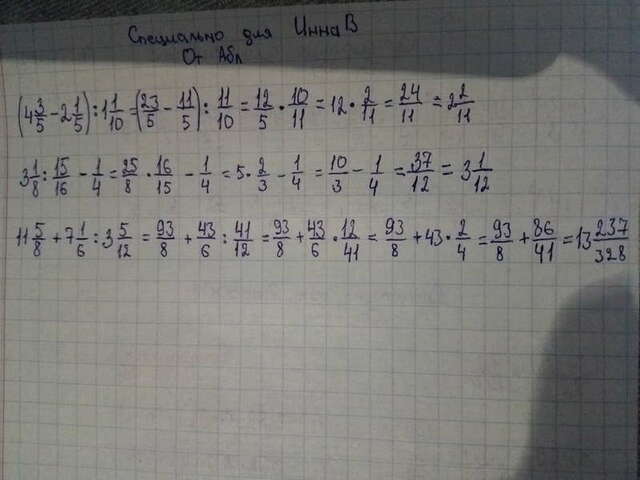 Специально для Инна В
От Абл
(4 3/5 - 2 1/5) : 1 1/10 = (23/5 - 11/5) : 11/10 = 12/5 · 10/11 = 12 · 2/11 = 24/11 = 2 2/11
3 1/8 : 15/16 - 1/4 = 25/8 · 16/15 - 1/4 = 5 · 2/3 - 1/4 = 10/3 - 1/4 = 37/12 = 3 1/12
11 5/8 + 7 1/6 : 3 5/12 = 93/8 + 43/6 : 41/12 = 93/8 + 43/6 · 12/41 = 93/8 + 43 · 2/4 = 93/8 + 86/41 = 13 237/328